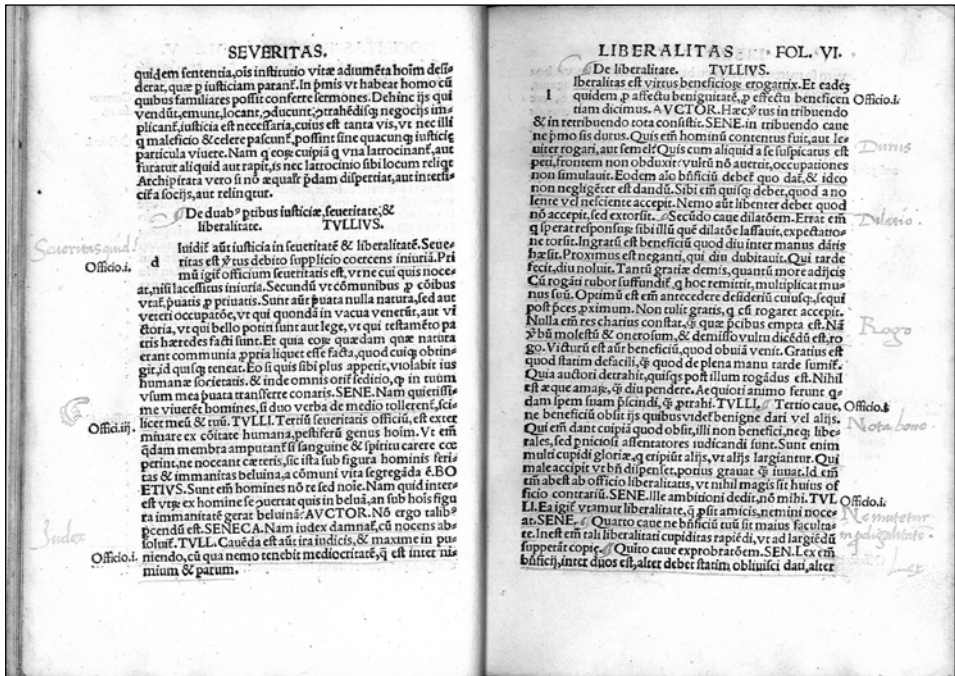 SEVERITAS.
quidem sententia, oīs institutio vitæ adiumēta hoīm desi-
derat, quæ ꝑ iusticiam paranť. In þmis vt habeat homo cū
quibus familiares possit conferre sermones. Dehinc ijs qui
vendūt, emunt, locant, ↄducunt, ↄtrahēdisqꝫ negocijs im-
plicanť, iusticia est necessaria, cuius est tanta vis, vt nec illi
q maleficio & scelere pascunť, possint sine quacunqꝫ iusticię
particula viuere. Nam q eoꝝ cuipiā q vna latrocinanť, aut
furatur aliquid aut rapit, is nec latrocinio sibi locum reliqt
Archipirata vero si nō æqualiť þdam dispertiat, aut interfi-
ciť a socijs, aut relinqtur.
De duabꝰ ptibus iusticiæ, seueritate, &
liberalitate. TVLLIVS.
Seueritas quid?
d Iuidiť aūt iusticia in seueritatē & liberalitatē. Seue-
Officio.i. ritas est ṽtus debito supplicio coercens iniuriā. Pri
mū igiť officium seueritatis est, vt ne cui quis noce-
at, nisi lacessitus iniuria. Secundū vt cōmunibus ꝑ cōibus
vtať, þuatis ꝑ priuatis. Sunt aūt þuata nulla natura, sed aut
veteri occupatōe, vt qui quondā in vacua venerūt, aut vi
ctoria, vt qui bello potiti sunt aut lege, vt qui testamēto pa
tris hæredes facti sunt. Et quia eoꝝ quædam quæ natura
erant communia ꝓpria liquet esse facta, quod cuiqꝫ obtin-
git, id quisqꝫ teneat. Eo si quis sibi plus appetit, violabit ius
humanæ societatis. & inde omnis oriť seditio, q in tuūm
vsum mea þuata transferre conaris. SENE. Nam quietissi-
me viuerēt homines, si duo verba de medio tollerenť, sci-
licet meū & tuū. TVLLI. Tertiū seueritatis officiū, est exter
Offici.iij. minare ex cōitate humana, pestiferū genus hoīm. Vt em̄
q̄dam membra amputanť si sanguine & spiritu carere cœ
perint, ne noceant cæteris, sic ista sub figura hominis feri-
tas & immanitas beluina, a cōmuni vita segregāda ē. BO
ETIVS. Sunt em̄ homines nō re sed noīe. Nam quid inter-
est vtrꝫ ex homine se ↄuertat quis in beluā, an sub hoīs figu
ra immanitatē gerat beluinā? AVCTOR. Nō ergo talibꝰ
pcendū est. SENECA. Nam iudex damnať, cū nocens ab-
Judex
soluiť. TVLL. Cauēda est aūt ira iudicis, & maxime in pu-
Officio.i. niendo, cū qua nemo tenebit mediocritatē, q̄ est inter ni-
mium & parum.
LIBERALITAS FOL. VI.
De liberalitate. TVLLIVS.
l Iberalitas est virtus beneficioꝝ erogatrix. Et eadeꝫ
quidem ꝑ affectu benignitatē, ꝑ effectu beneficen Officio.i.
tiam dicimus. AVCTOR. Hæc ṽtus in tribuendo
& in retribuendo tota consistit. SENE. in tribuendo caue
ne þmo sis durus. Quis em̄ hominū contentus fuit, aut le- Durus
uiter rogari, aut semel? Quis cum aliquid a se suspicatus est
peti, frontem non obduxit? vultū nō auertit, occupationes
non simulauit. Eodem aīo bn̄ficiū debeť quo dať, & ideo
non negligēter est dandū. Sibi em̄ quisqꝫ debet, quod a no
lente vel nesciente accepit. Nemo aūt libenter debet quod
nō accepit, sed extorsit. Secūdo caue dilatōem. Errat em̄ Dilatio.
q sperat responsuꝝ sibi illū quē dilatōe lassauit, expectatio-
ne torsit. Ingratū est beneficiū quod diu inter manus dātis
hæsit. Proximus est neganti, qui diu dubitauit. Qui tarde
fecit, diu noluit. Tantū gratiæ demis, quantū more adijcis
Cū rogāti rubor suffundiť, q hoc remittit, multiplicat mu-
nus suū. Optimū est em̄ antecedere desideriū cuiusqꝫ, sequi
post þces ꝓximum. Non tulit gratis, q cū rogaret accepit. Rogo
Nulla em̄ res charius constat, q̄ꝫ quæ þcibus empta est. Nā
ṽbū molestū & onerosum, & demisso vultu dicēdū est, ro
go. Victurū est aūť beneficiū, quod obuiā venit. Gratius est
quod statim defacili, q̄ꝫ quod de plena manu tarde sumiť.
Quia auctori detrahit, quisqs post illum rogādus est. Nihil
est æque amaꝝ, q̄ꝫ diu pendere. Aequiori animo ferunt q̄-
dam spem suam þscindi, q̄ꝫ ꝓtrahi. TVLLI. Tertio caue, Officio.i
ne beneficiū obsit ijs quibus videť benigne dari vel alijs. Nota bono.
Qui em̄ dant cuipiā quod obsit, illi non benefici, neqꝫ libe-
rales, sed pniciosi assentatores iudicandi sunt. Sunt enim
multi cupidi gloriæ, q eripiūt alijs, vt alijs largiantur. Qui
male accipit vt bn̄ dispenset, potius grauat q̄ꝫ iuuat. Id em̄
tm̄ abest ab officio liberalitatis, vt nihil magis sit huius of
ficio contrariū. SENE. Ille ambitioni dedit, nō mihi. TVL Officio.i.
LI. Ea igiť vtamur liberalitate, q̄ psit amicis, nemini noce-
at. SENE. Quarto caue ne bn̄ficiū tuū sit maius faculta-
te. Inest em̄ tali liberalitati cupiditas rapiēdi, vt ad largiēdū
suppetāt copie. Quīto caue exprobrarōem. SEN. Lex em̄ Lex
bn̄ficij, inter duos est, alter debet statim obliuisci dati, alter